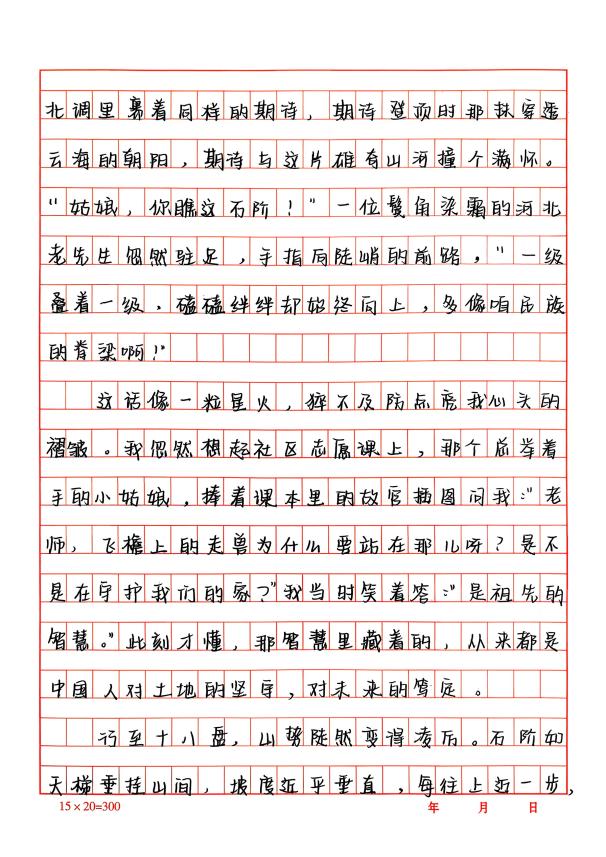 北调里裹着同样的期待，期待登顶时那抹穿透
云海的朝阳，期待与这片雄奇山河撞个满怀。
“姑娘，你瞧这石阶！”一位鬓角染霜的河北
老先生忽然驻足，手指向陡峭的前路，“一级
叠着一级，磕磕绊绊却始终向上，多像咱民族
的脊梁啊！”
这话像一粒星火，猝不及防点亮我心头的
褶皱。我忽然想起社区志愿课上，那个总举着
手的小姑娘，捧着课本里的故宫插图问我：“老
师，飞檐上的走兽为什么要站在那儿呀？是不
是在守护我们的家？”我当时笑着答：“是祖先的
智慧。”此刻才懂，那智慧里藏着的，从来都是
中国人对土地的坚守，对未来的笃定。
行至十八盘，山势陡然变得凌厉。石阶如
天梯垂挂山间，坡度近乎垂直，每往上迈一步，
15×20=300
年 月 日